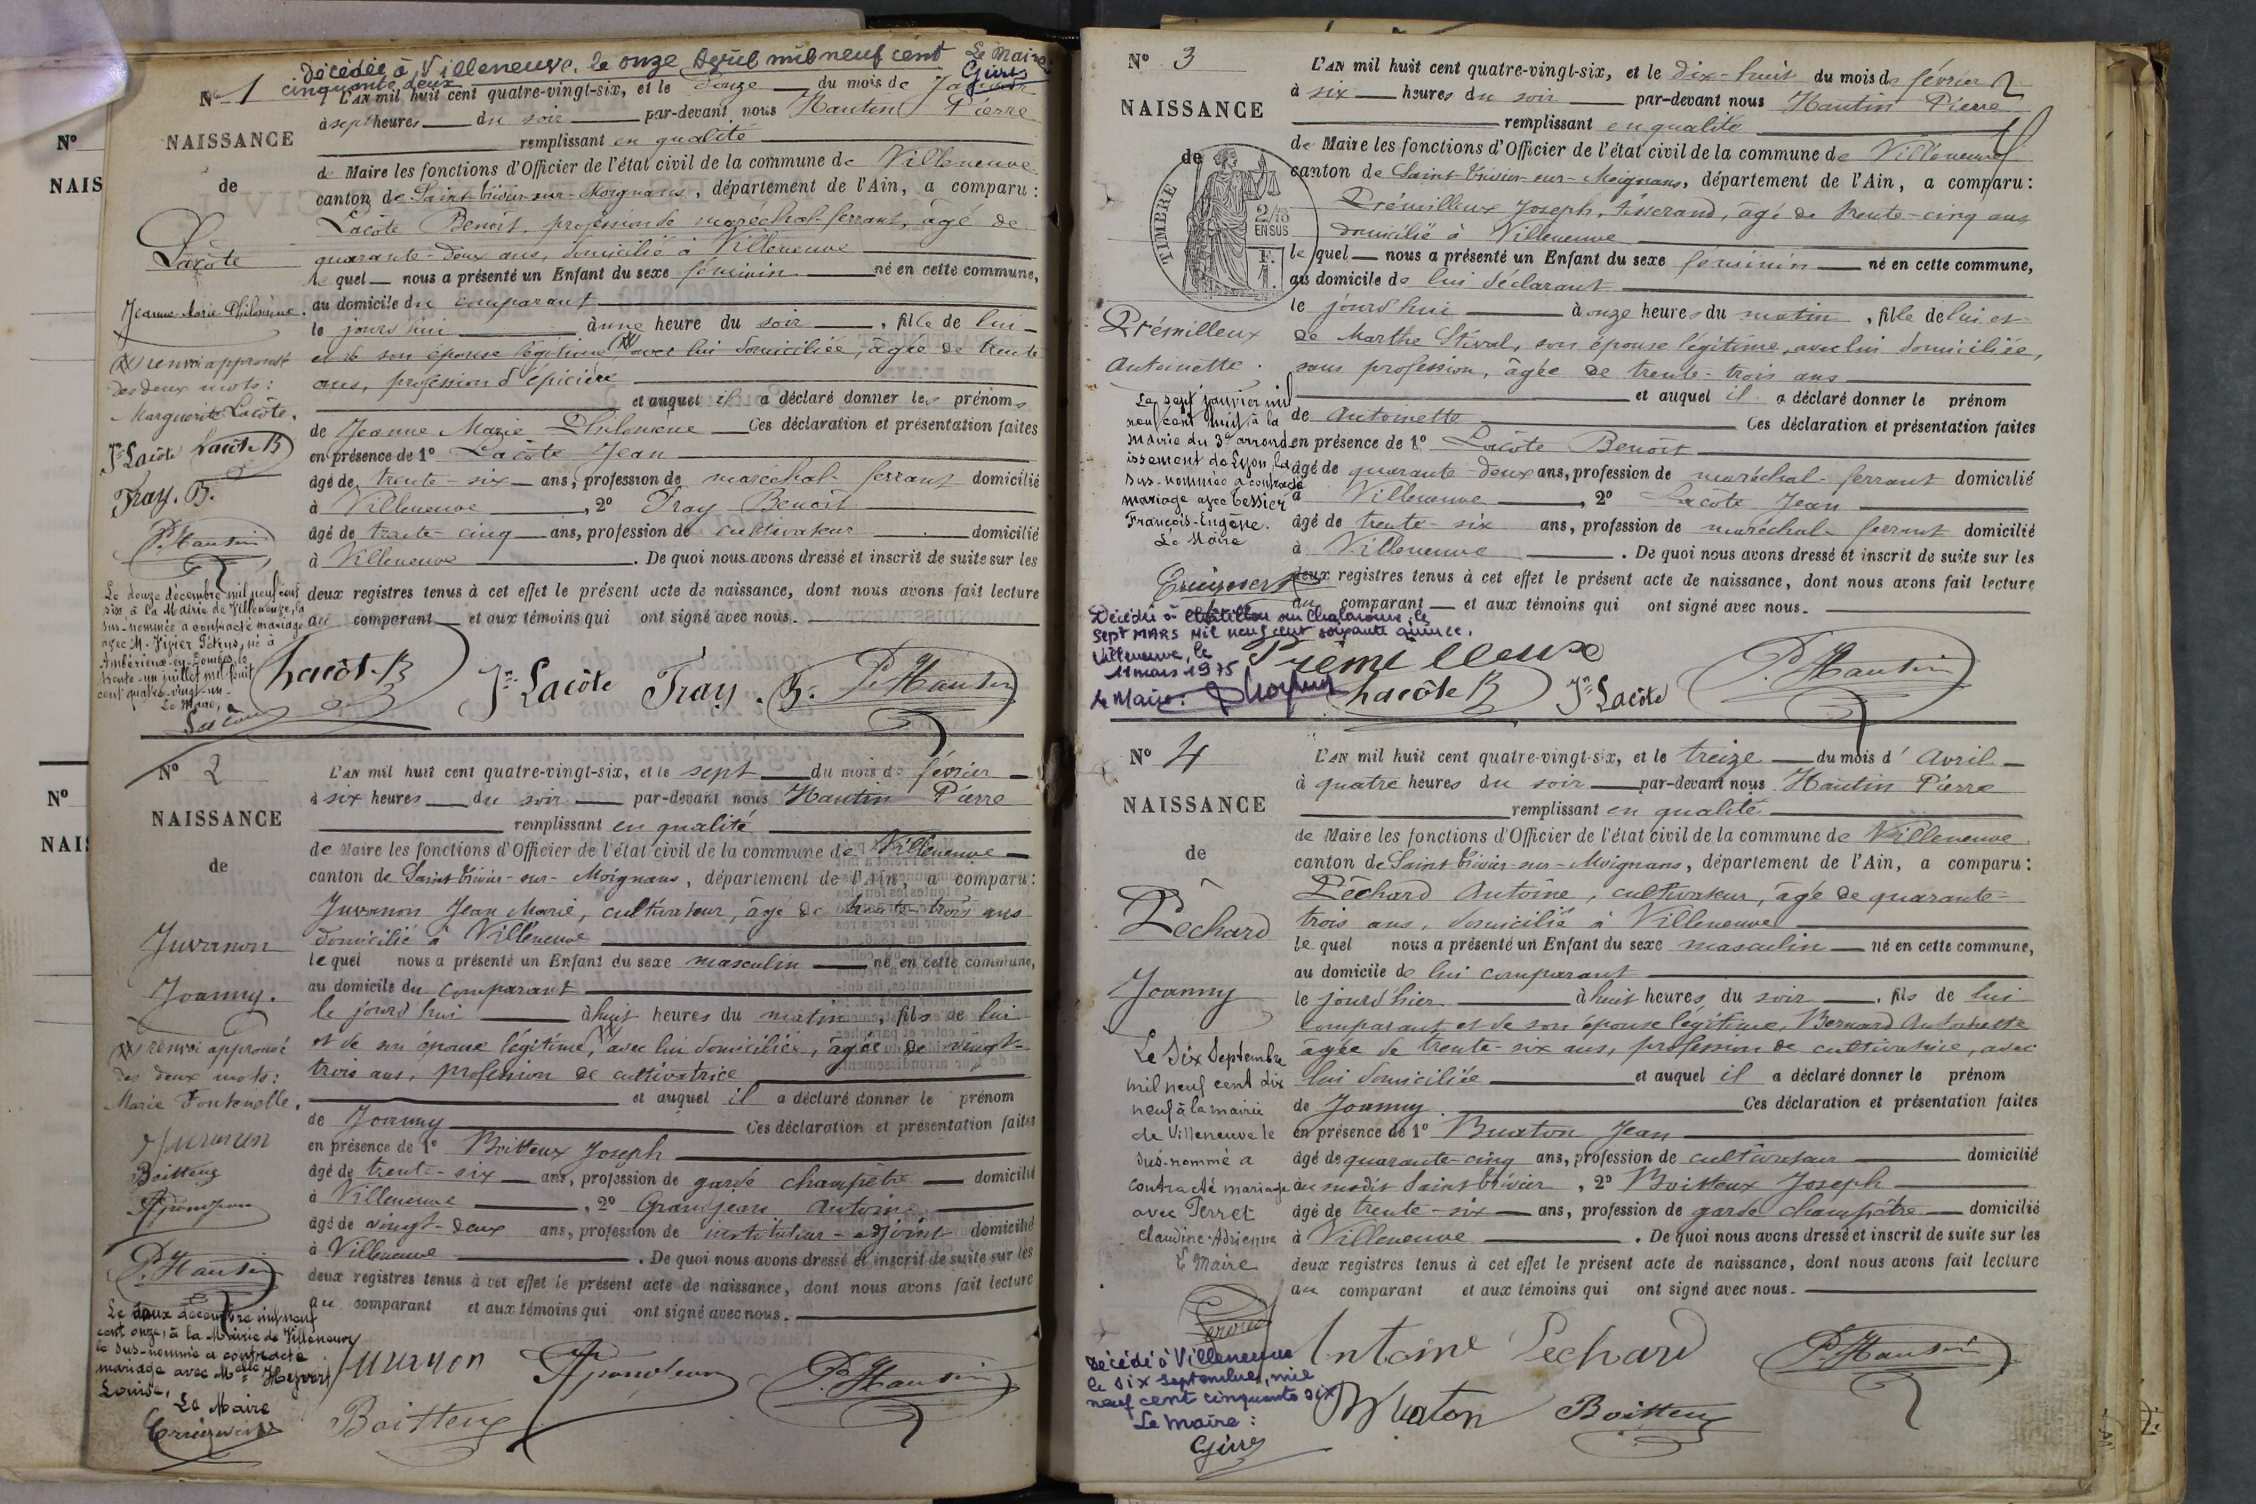 Décédée à Villeneuve, le onze Avril mil neuf cent
cinquante deux
Le Maire
N° 1
NAISSANCE
de
Lacôte
Jeanne Marie Philomène.
renvoi approuvé
des deux mots :
Marguerite Lacôte.
Jn Lacôte Lacôte B
Fray. B.
P. Hautin
Le douze décembre mil neuf cent
six à la Mairie de Villeneuve, la
sus-nommée a contracté mariage
avec M. Vivier Pétrus, né à
Ambérieux-en-Dombes le
trente-un juillet mil huit
cent quatre-vingt-un.
Le Maire,
L'AN mil huit cent quatre-vingt-six, et le douze du mois de Janvier
à sept heures du soir par-devant nous Hautin Pierre
remplissant en qualité
de Maire les fonctions d'Officier de l'état civil de la commune de Villeneuve
canton de Saint-Trivier-sur-Moignans, département de l'Ain, a comparu :
Lacôte Benoit, profession de maréchal-ferrant, âgé de
quarante-deux ans, domicilié à Villeneuve
le quel nous a présenté un Enfant du sexe féminin né en cette commune,
au domicile du comparant
le jourd'hui à une heure du soir, fille de lui
et de son épouse légitime, avec lui domiciliée, âgée de trente
ans, profession d'épicière
et auquel il a déclaré donner les prénoms
de Jeanne Marie Philomène Ces déclaration et présentation faites
en présence de 1° Lacôte Jean
âgé de trente-six ans, profession de maréchal-ferrant domicilié
à Villeneuve, 2° Fray Benoit
âgé de trente-cinq ans, profession de cultivateur domicilié
à Villeneuve. De quoi nous avons dressé et inscrit de suite sur les
deux registres tenus à cet effet le présent acte de naissance, dont nous avons fait lecture
au comparant et aux témoins qui ont signé avec nous.
Lacôte B Jn Lacôte Fray. B. P. Hautin
N° 2
NAISSANCE
de
Juvanon
Joanny.
renvoi approuvé
des deux mots :
Marie Fontenelle.
Juvanon
Boitteux
P. Hautin
Le deux décembre mil neuf
cent onze, à la Mairie de Villeneuve
le sus-nommé a contracté
mariage avec Melle
Louise,
Le Maire
L'AN mil huit cent quatre-vingt-six, et le sept du mois de février
à six heures du soir par-devant nous Hautin Pierre
remplissant en qualité
de Maire les fonctions d'Officier de l'état civil de la commune de Villeneuve
canton de Saint-Trivier-sur-Moignans, département de l'Ain, a comparu :
Juvanon Jean Marie, cultivateur, âgé de trente-trois ans
domicilié à Villeneuve
le quel nous a présenté un Enfant du sexe masculin né en cette commune,
au domicile du comparant
le jourd'hui à huit heures du matin, fils de lui
et de son épouse légitime, avec lui domiciliée, âgée de vingt-
trois ans, profession de cultivatrice
et auquel il a déclaré donner le prénom
de Joanny Ces déclaration et présentation faites
en présence de 1° Boitteux Joseph
âgé de trente-six ans, profession de garde champêtre domicilié
à Villeneuve, 2° Grandjean Antoine
âgé de vingt-deux ans, profession de instituteur-adjoint domicilié
à Villeneuve. De quoi nous avons dressé et inscrit de suite sur les
deux registres tenus à cet effet le présent acte de naissance, dont nous avons fait lecture
au comparant et aux témoins qui ont signé avec nous.
Juvanon Grandjean P. Hautin
Boitteux
N° 3
NAISSANCE
de
TIMBRE
2/10
EN SUS
Prémilleux
Antoinette.
Le sept janvier mil
neuf cent huit à la
mairie du 3e arrond-
issement de Lyon, la
sus-nommée a contracté
mariage avec Tessier
François-Eugène.
Le Maire
Décédée à Châtillon sur Chalaronne, le
sept MARS mil neuf cent soixante quinze.
Villeneuve, le
11 mars 1975
Le Maire :
L'AN mil huit cent quatre-vingt-six, et le dix-huit du mois de février
à six heures du soir par-devant nous Hautin Pierre
remplissant en qualité
de Maire les fonctions d'Officier de l'état civil de la commune de Villeneuve
canton de Saint-Trivier-sur-Moignans, département de l'Ain, a comparu :
Prémilleux Joseph, tisserand, âgé de trente-cinq ans
domicilié à Villeneuve
le quel nous a présenté un Enfant du sexe féminin né en cette commune,
au domicile de lui déclarant
le jourd'hui à onze heures du matin, fille de lui et
de Marthe Stival, son épouse légitime, avec lui domiciliée,
sans profession, âgée de trente-trois ans
et auquel il a déclaré donner le prénom
de Antoinette Ces déclaration et présentation faites
en présence de 1° Lacôte Benoit
âgé de quarante-deux ans, profession de maréchal-ferrant domicilié
à Villeneuve, 2° Lacôte Jean
âgé de trente-six ans, profession de maréchal-ferrant domicilié
à Villeneuve. De quoi nous avons dressé et inscrit de suite sur les
deux registres tenus à cet effet le présent acte de naissance, dont nous avons fait lecture
au comparant et aux témoins qui ont signé avec nous.
Prémilleux
Lacôte B Jn Lacôte P. Hautin
N° 4
NAISSANCE
de
Pêchard
Joanny
Le Six Septembre
mil neuf cent dix
neuf à la mairie
de Villeneuve le
sus-nommé a
contracté mariage
avec Perret
Claudine-Adrienne
Le Maire
Décédé à Villeneuve
le six septembre, mil
neuf cent cinquante six
Le Maire :
L'AN mil huit cent quatre-vingt-six, et le treize du mois d'Avril
à quatre heures du soir par-devant nous Hautin Pierre
remplissant en qualité
de Maire les fonctions d'Officier de l'état civil de la commune de Villeneuve
canton de Saint-Trivier-sur-Moignans, département de l'Ain, a comparu :
Pêchard Antoine, cultivateur, âgé de quarante-
trois ans, domicilié à Villeneuve
le quel nous a présenté un Enfant du sexe masculin né en cette commune,
au domicile de lui comparant
le jourd'hier à huit heures du soir, fils de lui
comparant et de son épouse légitime, Bernard Antoinette
âgée de trente-six ans, profession de cultivatrice, avec
lui domiciliée et auquel il a déclaré donner le prénom
de Joanny Ces déclaration et présentation faites
en présence de 1° Buaton Jean
âgé de quarante-cinq ans, profession de cultivateur domicilié
au susdit Saint-Trivier, 2° Boitteux Joseph
âgé de trente-six ans, profession de garde champêtre domicilié
à Villeneuve. De quoi nous avons dressé et inscrit de suite sur les
deux registres tenus à cet effet le présent acte de naissance, dont nous avons fait lecture
au comparant et aux témoins qui ont signé avec nous.
Antoine Pechard P. Hautin
Buaton Boitteux
N°
NAIS
N°
NAIS